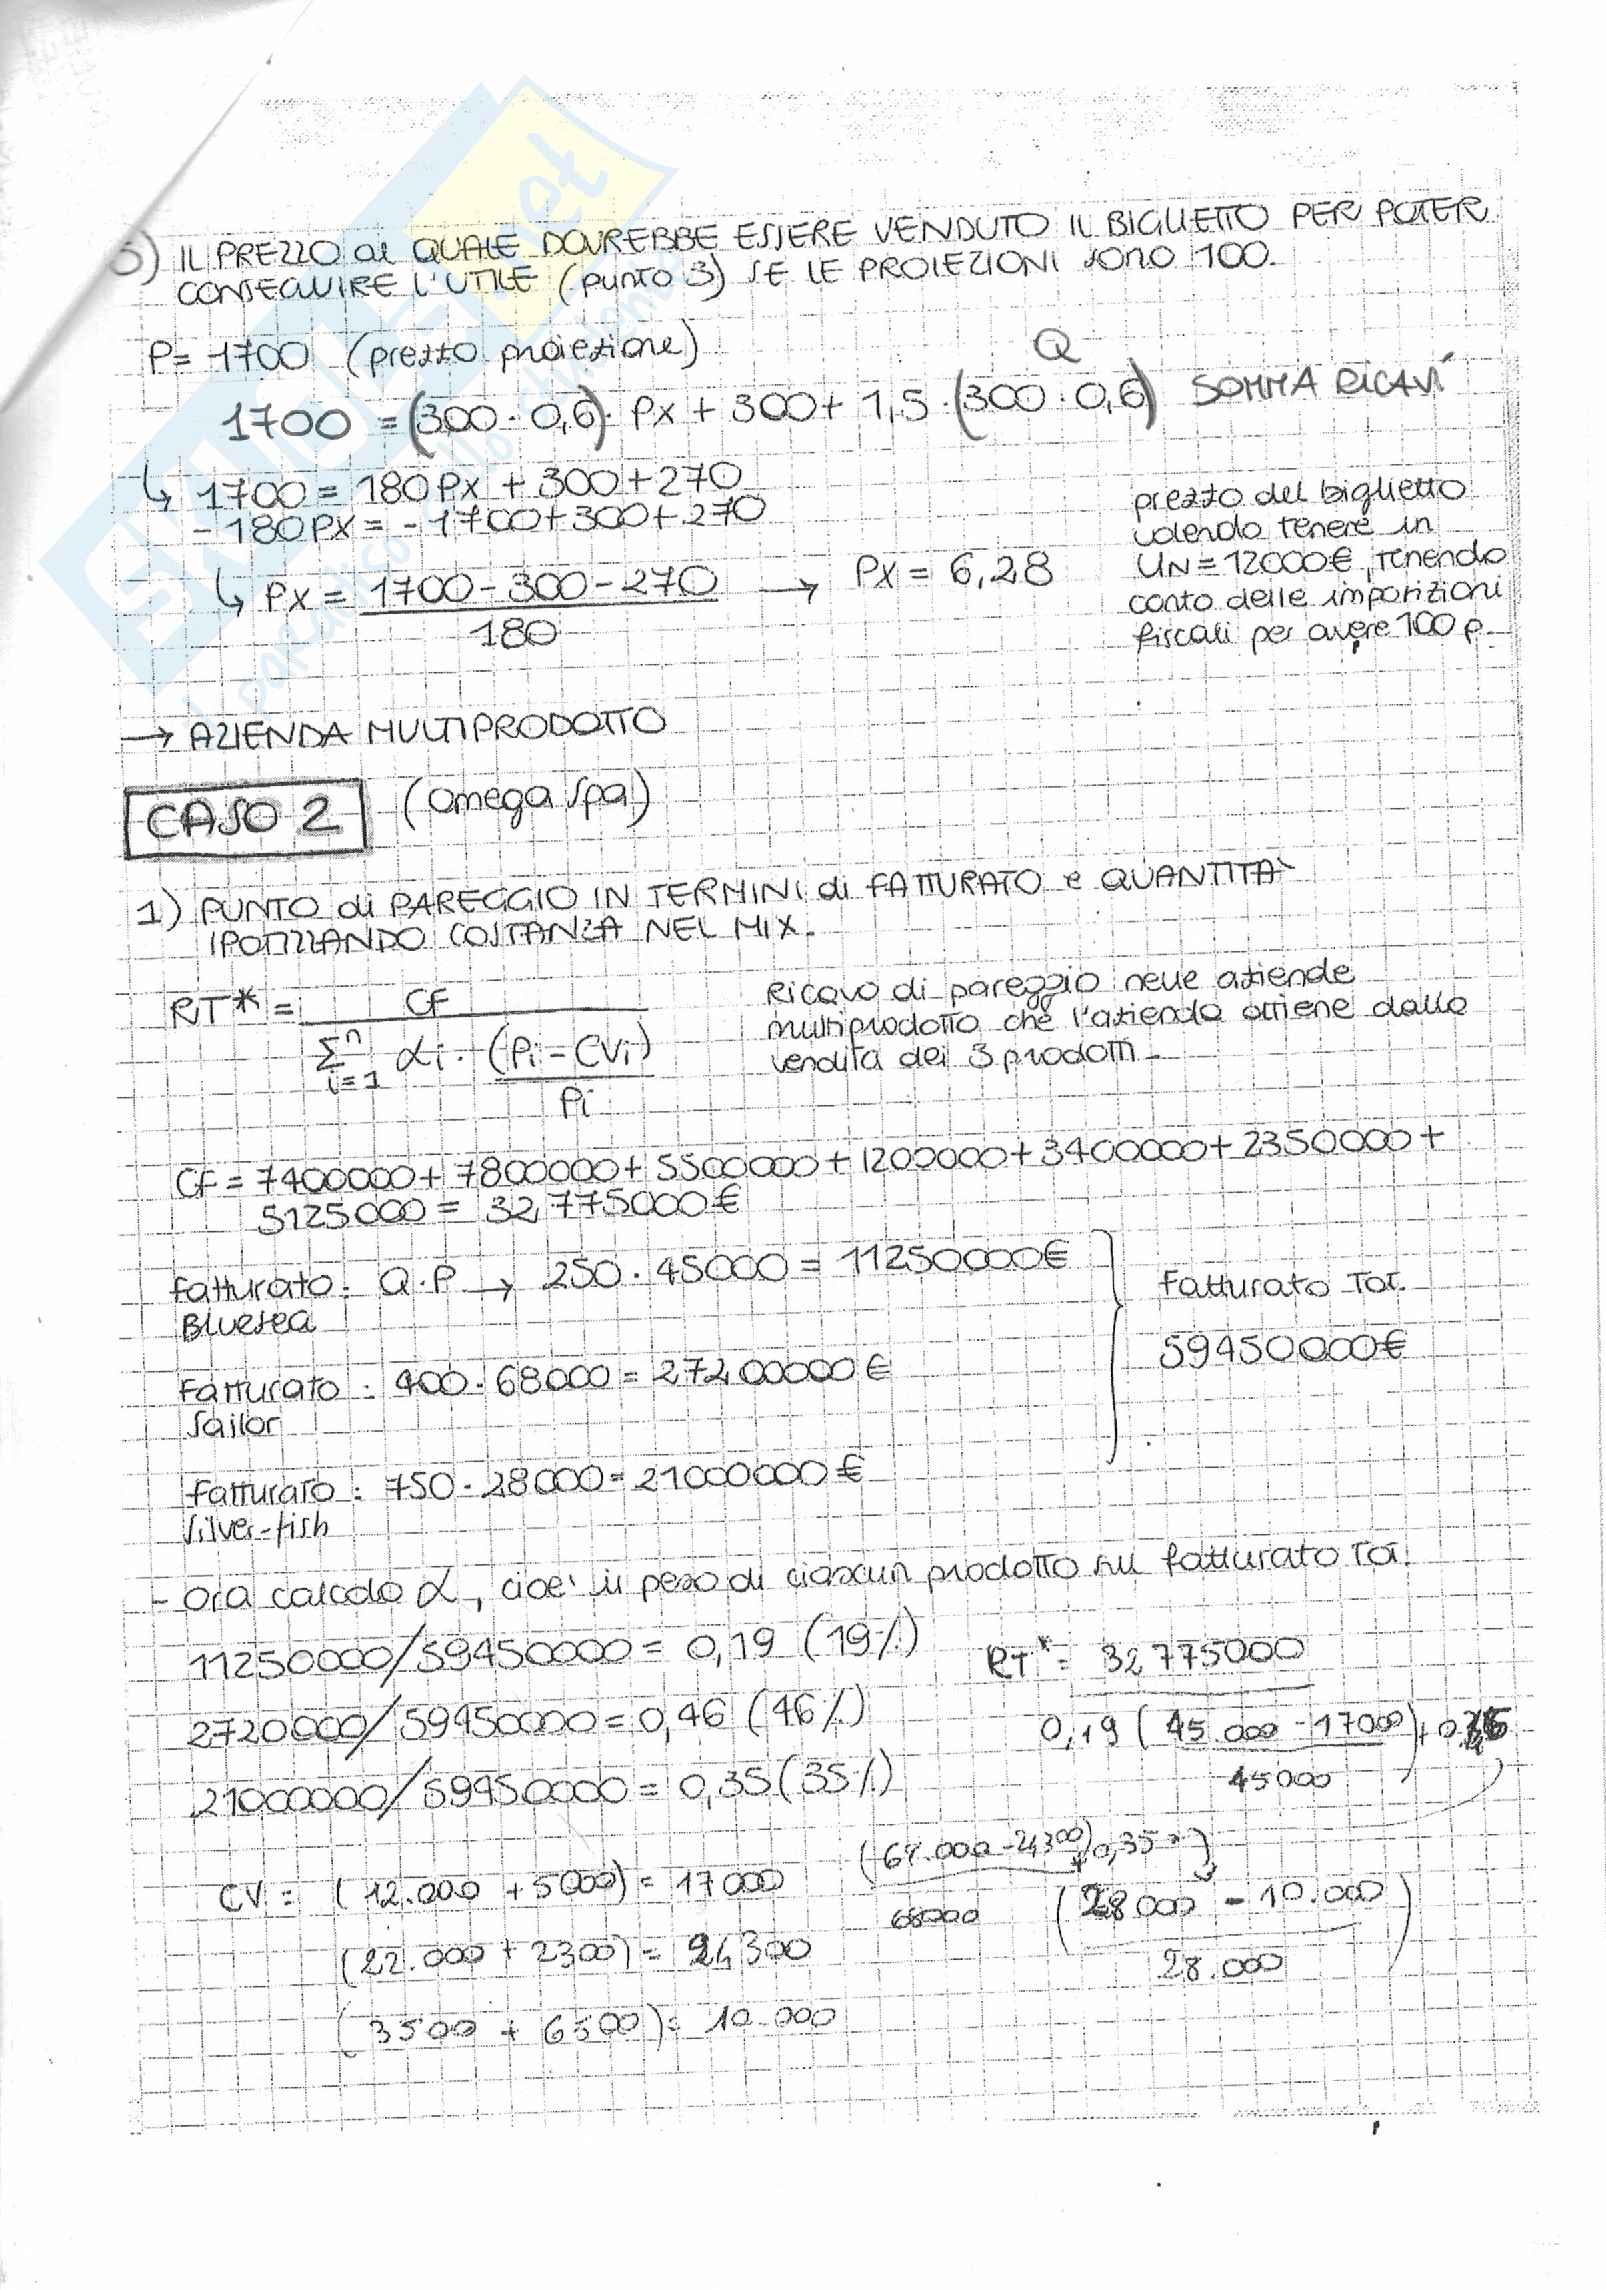 5) IL PREZZO al QUALE DOVREBBE ESSERE VENDUTO IL BIGLIETTO PER POTER
CONSEGUIRE L'UTILE (punto 3) SE LE PROIEZIONI sono 100.
P = 1700 (prezzo proiezione)
Q
1700 = (300 · 0,6) · Px + 300 + 1,5 · (300 · 0,6) SOMMA RICAVI
↳ 1700 = 180 Px + 300 + 270
- 180 Px = - 1700 + 300 + 270
↳ Px = 1700 - 300 - 270 / 180 → Px = 6,28
prezzo del biglietto
volendo tenere in
UN = 12000€, tenendo
conto delle imposizioni
fiscali per avere 100 p.
→ AZIENDA MULTIPRODOTTO
CASO 2 (Omega Spa)
1) PUNTO di PAREGGIO IN TERMINI di FATTURATO e QUANTITÀ
IPOTIZZANDO COSTANZA NEL MIX.
RT* = CF / Σ n i=1 αi · (Pi - CVi) / Pi
Ricavo di pareggio nelle aziende
multiprodotto che l'azienda ottiene dalla
vendita dei 3 prodotti
CF = 7400000 + 7800000 + 5500000 + 1200000 + 3400000 + 2350000 +
5125000 = 32,775000€
fatturato: Q·P → 250 · 45000 = 11250000€
Bluesea
Fatturato Tot.
59450000€
Fatturato: 400 · 68000 = 27200000€
Sailor
fatturato: 750 · 28000 = 21000000€
Silver-fish
- Ora calcolo α, cioè il peso di ciascun prodotto su fatturato Tot.
11250000/59450000 = 0,19 (19%)
2720000/59450000 = 0,46 (46%)
21000000/59450000 = 0,35 (35%)
RT* = 32775000
0,19 (45.000 - 17000 / 45000) + 0,46
(68.000 - 24300 / 68000) + 0,35 ·
(28000 - 10.000 / 28.000)
CV = (12.000 + 5000) = 17000
(22.000 + 2300) = 24300
(3500 + 6500) = 10.000